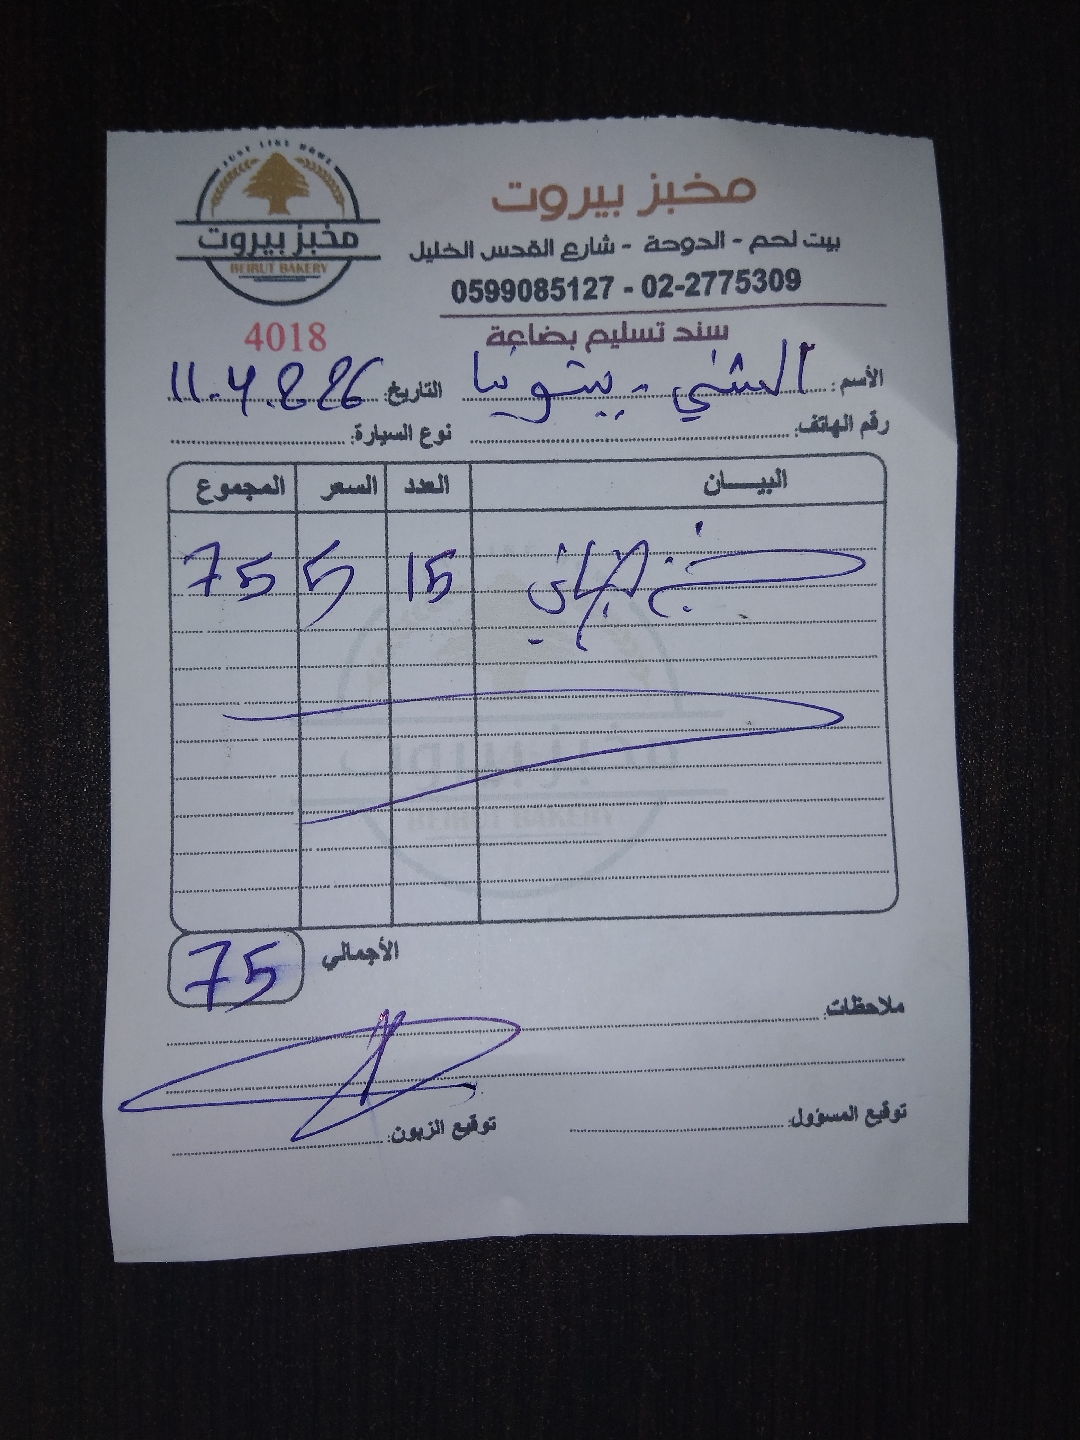 JUST LIKE HOME
مخبز بيروت
BEIRUT BAKERY
مخبز بيروت
بيت لحم - الدوحة - شارع القدس الخليل
0599085127 - 02-2775309
4018
سند تسليم بضاعة
الأسم: - بيتونيا
التاريخ:
رقم الهاتف:
نوع السيارة:
البيـــان العدد السعر المجموع
15 5 75
الأجمالي 75
ملاحظات:
توقيع المسؤول:
توقيع الزبون: